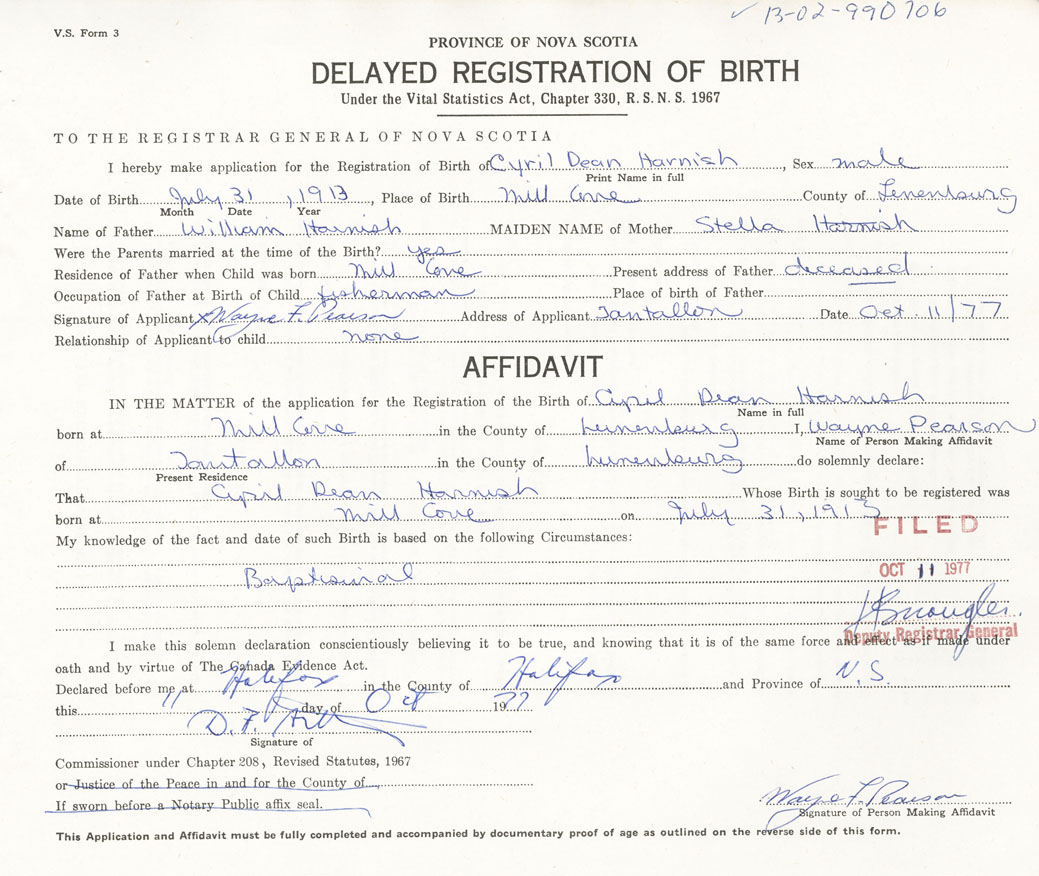 ✓ 13-02-990706
V.S. Form 3
PROVINCE OF NOVA SCOTIA
DELAYED REGISTRATION OF BIRTH
Under the Vital Statistics Act, Chapter 330, R. S. N. S. 1967
TO THE REGISTRAR GENERAL OF NOVA SCOTIA
I hereby make application for the Registration of Birth of Cyril Dean Harnish, Sex male
Print Name in full
Date of Birth July 31, 1913, Place of Birth Mill Cove County of Lunenburg
Month Date Year
Name of Father William Harnish MAIDEN NAME of Mother Stella Harnish
Were the Parents married at the time of the Birth? yes
Residence of Father when Child was born Mill Cove Present address of Father deceased
Occupation of Father at Birth of Child fisherman Place of birth of Father
Signature of Applicant x Wayne F. Pearson Address of Applicant Tantallon Date Oct 11/77
Relationship of Applicant to child none
AFFIDAVIT
IN THE MATTER of the application for the Registration of the Birth of Cyril Dean Harnish
Name in full
born at Mill Cove in the County of Lunenburg I, Wayne Pearson
Name of Person Making Affidavit
of Tantallon in the County of Lunenburg do solemnly declare:
Present Residence
That Cyril Dean Harnish Whose Birth is sought to be registered was
born at Mill Cove on July 31, 1913
FILED
My knowledge of the fact and date of such Birth is based on the following Circumstances:
Baptismal
OCT 11 1977
Deputy Registrar General
I make this solemn declaration conscientiously believing it to be true, and knowing that it is of the same force and effect as if made under
oath and by virtue of The Canada Evidence Act.
Declared before me at Halifax in the County of Halifax and Province of N.S.
this 11 day of Oct 1977
D. F.
Signature of
Commissioner under Chapter 208, Revised Statutes, 1967
or Justice of the Peace in and for the County of
If sworn before a Notary Public affix seal.
Wayne F. Pearson
Signature of Person Making Affidavit
This Application and Affidavit must be fully completed and accompanied by documentary proof of age as outlined on the reverse side of this form.